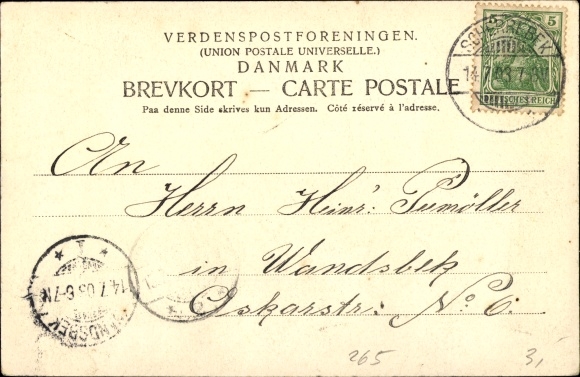 VERDENSPOSTFORENINGEN.
(UNION POSTALE UNIVERSELLE.)
DANMARK
BREVKORT — CARTE POSTALE
Paa denne Side skrives kun Adressen. Côté réservé à l'adresse.
5 5
SCHERREBEK
14.7.03.7-8N
DEUTSCHES REICH
An
Herrn Heinr: Pumöller
in Wandsbek
Oskarstr: No 6.
WANDSBEK
* 1 *
14.7.03.6-7N
265
3,